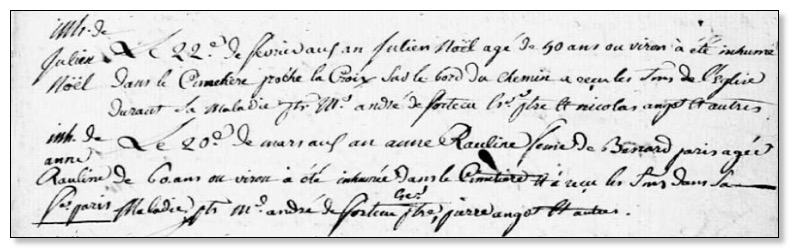 inh. de
Julien
Noël
Le 22.e de fevrier aud an Julien Noël agé de 50 ans ou viron à été inhumé
dans le Cimetiere proche la Croix sus le bord du chemin a reçu les Srns de l'Eglise
durant sa Maladie pts Mr. andré de forteu ptre Et nicolas angot Et autres
inh. de
anne
Rauline
fe. paris
Le 20.e de mars aud an anne Rauline feme de Besnard paris agée
de 60 ans ou viron à été inhumée dans le Cimetiere Et à reçu les Srns dans sa
Maladie, pts Mr. andré de forteu ptre, pierre angot Et autres.